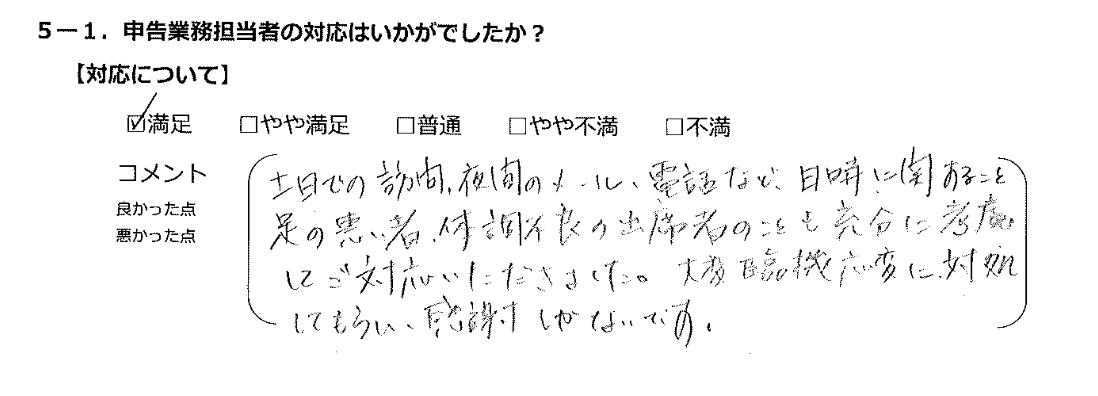 5－1．申告業務担当者の対応はいかがでしたか？
【対応について】
☑満足 □やや満足 □普通 □やや不満 □不満
コメント
良かった点
悪かった点
土日での訪問、夜間のメール、電話など、日時に関あること
足の悪い者、体調不良の出席者のことも充分に考慮
してご対応いただきました。大変臨機応変に対処
してもらい、感謝しかないです。